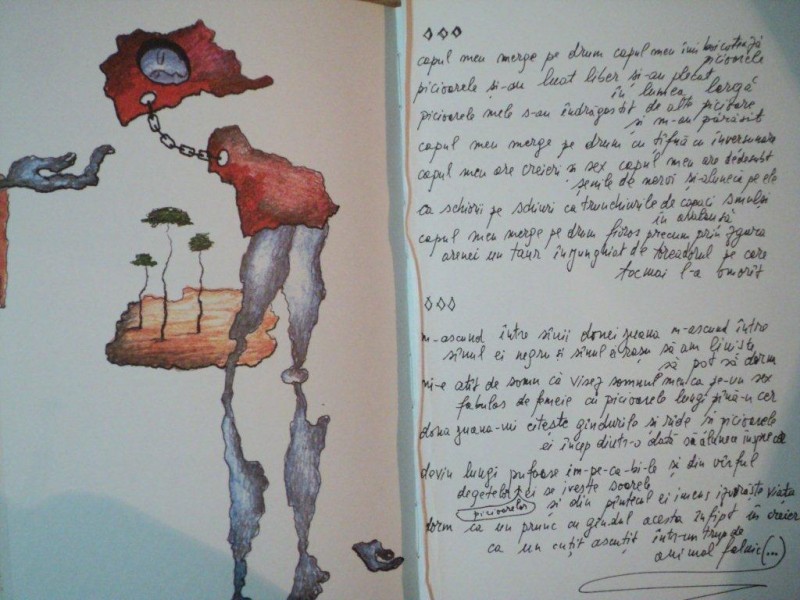 capul meu merge pe drum capul meu îmi biciuiează
picioarele
picioarele și-au luat liber și-au plecat
în lumea largă
picioarele mele s-au îndrăgostit de alte picioare
și m-au părăsit
capul meu merge pe drum cu țîfnă cu înverșunare
capul meu are creieri și sex capul meu are dedesubt
șenile de noroi și-alunecă pe ele
ca schiorii pe schiuri ca trunchiurile de copaci smulși
în avalanșă
capul meu merge pe drum furios precum prin zgura
arenei un taur înjunghiat de toreadorul pe care
tocmai l-a omorît
m-ascund între sînii donei juana m-ascund între
sînul ei negru și sînul ei roșu să am liniște
să pot să dorm
mi-e atît de somn că visez somnul meu ca pe-un sex
fabulos de femeie cu picioarele lungi pînă-n cer
dona juana-mi citește gîndurile și rîde și picioarele
ei încep dintr-o dată să alunece înspre cer
devin lungi pufoase im-pe-ca-bi-le și din vîrful
degetelor ei se ivește soarele
picioarelor și din pîntecul ei încet izvorăște viața
dorm ca un prunc cu gîndul acesta înfipt în creier
ca un cuțit ascuțit într-un trup de
animal falnic (...)